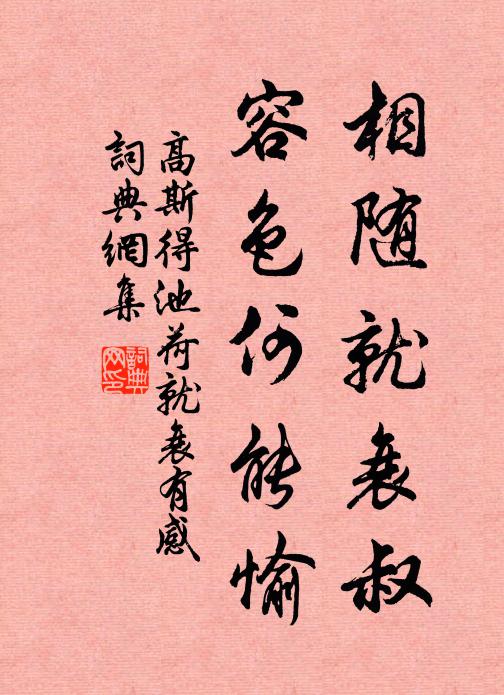 相随就衰叔
容色何能愉
高斯得池荷就衰有感
詞典網集
詞典网印